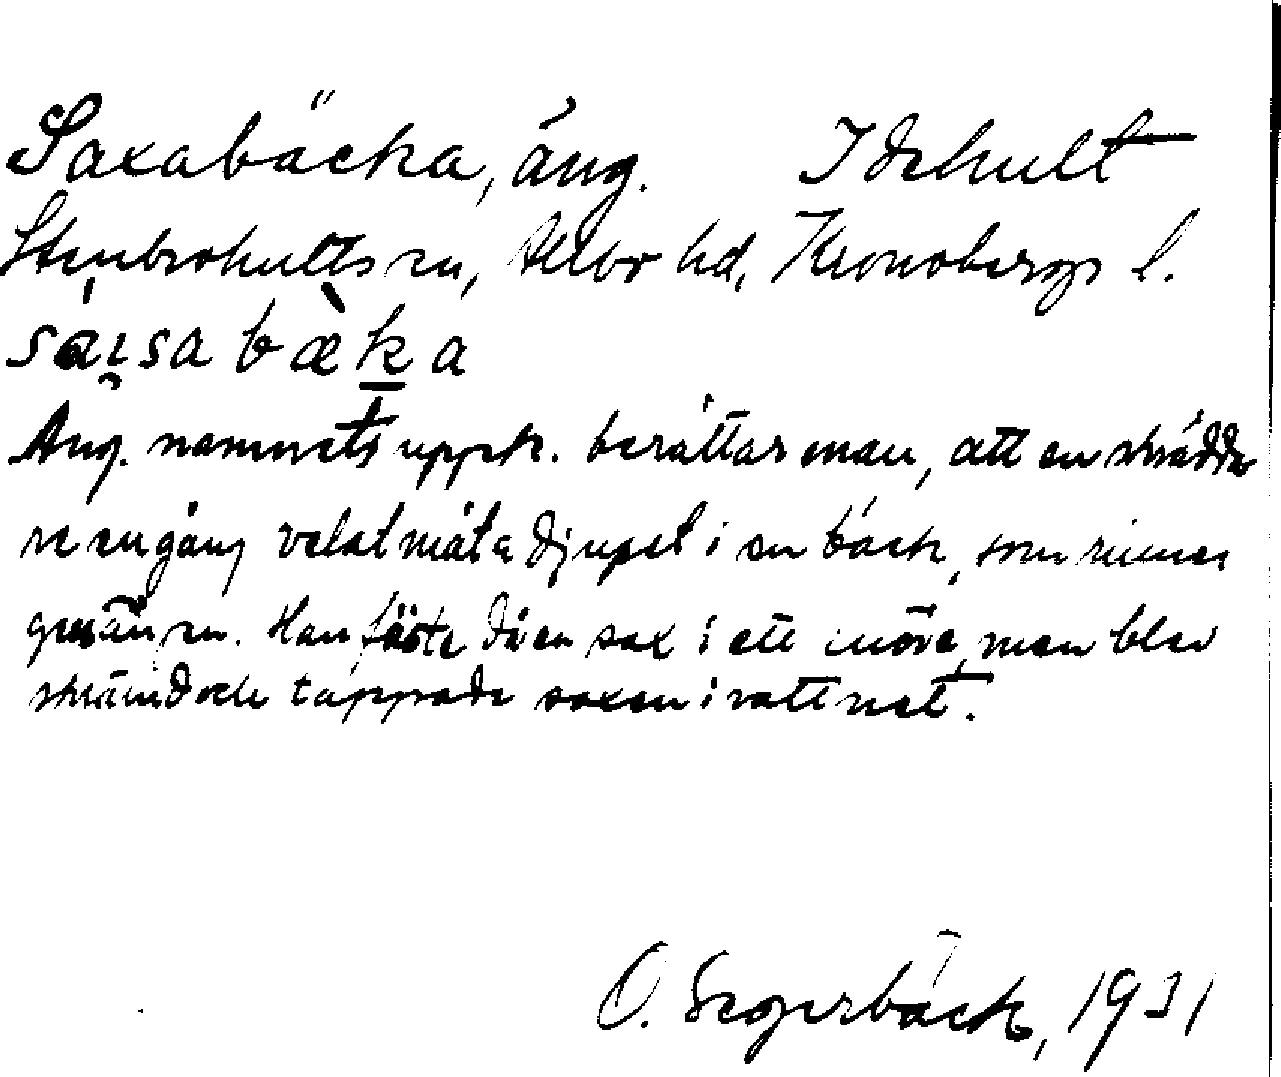 Saxabäcka, äng. Idehult
Stenbrohults sn, Allbo hd, Kronobergs l.
sáɪsa bæ̀ka
Ang. namnets uppk. berättar man, att en skrädda
re en gång velat mäta djupet i en bäck, som rinner
gm än en. Han fäste då en sax i ett snöre, men blev
skrämd och tappade saxen i vattnet.
O. Segerbäck, 1931